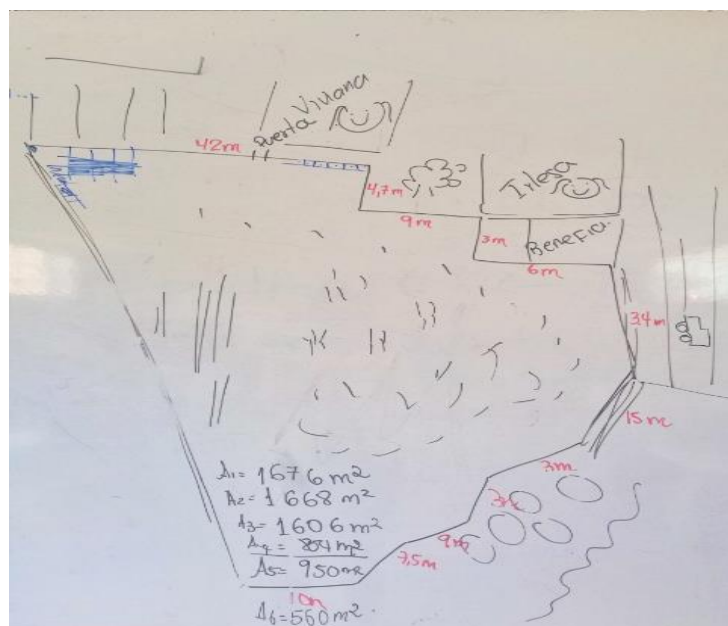 Viviana
Puerta
42m
4,7m
9m
Irlesa
3m
Benefici.
6m
34m
15m
3m
3m
9m
7,5m
10m
A1= 1676 m²
A2= 1668 m²
A3= 1606 m²
A4= 884 m²
A5= 950 m²
A6= 560 m².